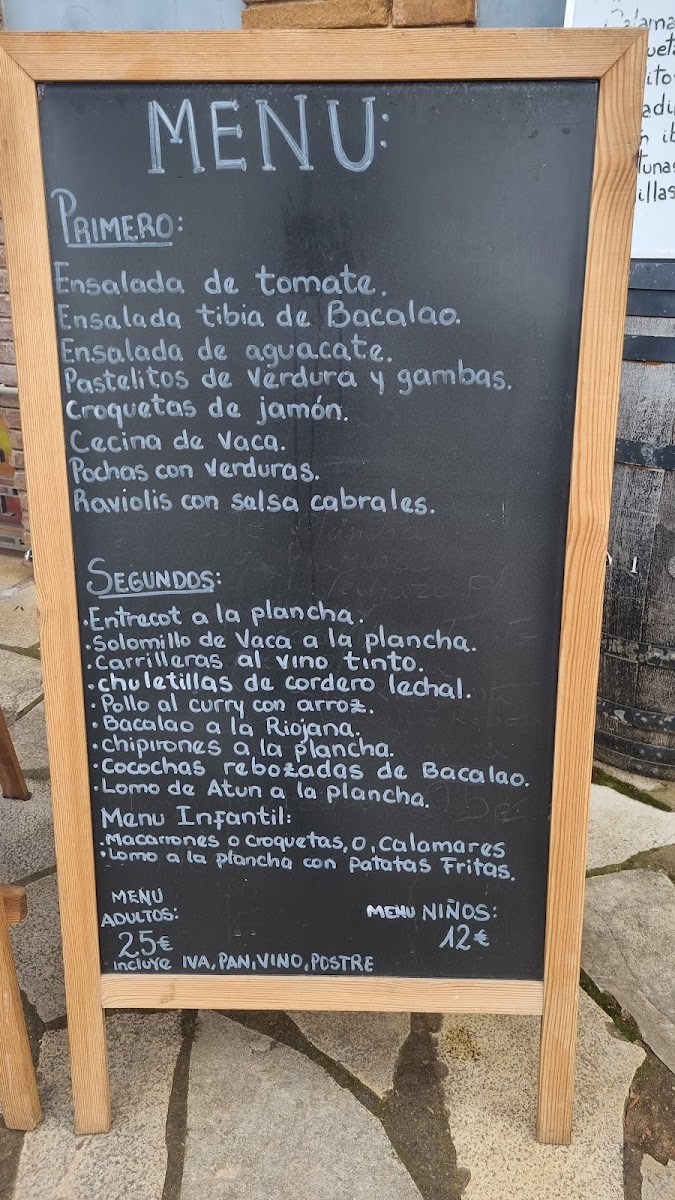 MENU:
PRIMERO:
Ensalada de tomate.
Ensalada tibia de Bacalao.
Ensalada de aguacate.
Pastelitos de verdura y gambas.
Croquetas de jamón.
Cecina de Vaca.
Pochas con verduras.
Raviolis con salsa cabrales.
SEGUNDOS:
·Entrecot a la plancha.
·Solomillo de Vaca a la plancha.
·Carrilleras al vino tinto.
·chuletillas de cordero lechal.
·Pollo al curry con arroz.
·Bacalao a la Riojana.
·chipirones a la plancha.
·Cocochas rebozadas de Bacalao.
·Lomo de Atun a la plancha.
Menu Infantil:
·Macarrones o croquetas, o, calamares
·Lomo a la plancha con Patatas Fritas.
MENU
ADULTOS:
25€
MENU NIÑOS:
12€
- incluye IVA, PAN, VINO, POSTRE